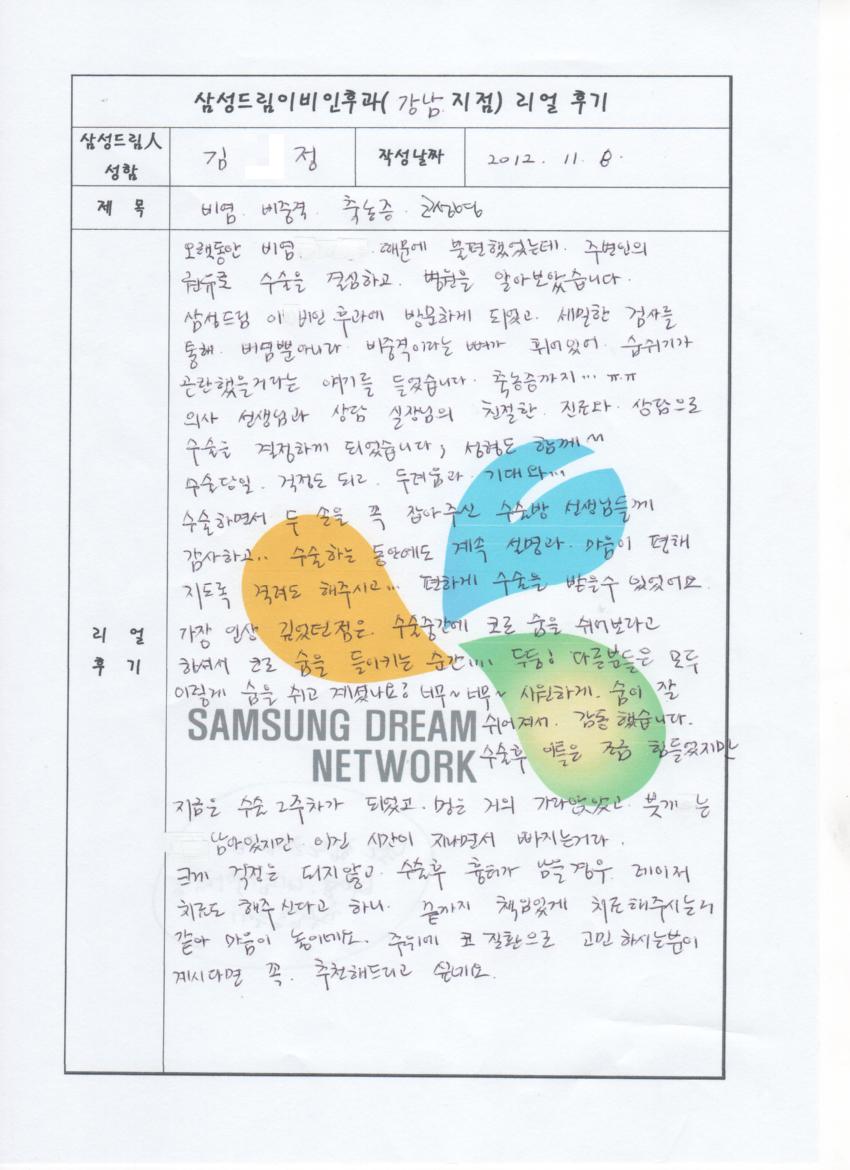 삼성드림이비인후과( 강남 지점) 리얼 후기
삼성드림人 성함
김 정
작성날짜
2012. 11. 8.
제 목
비염. 비중격. 축농증. 코성형
리 얼 후 기
오랫동안 비염 때문에 불편했었는데. 주변인의
권유로 수술을 결심하고. 병원을 알아보았습니다.
삼성드림 이비인후과에 방문하게 되었고. 세밀한 검사를
통해. 비염뿐아니라. 비중격이라는 뼈가 휘어있어. 숨쉬기가
곤란했을거라는 얘기를 들었습니다. 축농증까지... ㅠㅠ
의사 선생님과 상담 실장님의 친절한. 진료와. 상담으로
수술을 결정하게 되었습니다; 성형도 함께^^
수술당일. 걱정도 되고. 두려움과. 기대와...
수술하면서 두 손을 꼭 잡아주신 수술방 선생님들께
감사하고.. 수술하는 동안에도 계속 설명과. 마음이 편해
지도록 격려도 해주시고... 편하게 수술을 받을수 있었어요.
가장 인상 깊었던점은. 수술중간에 코로 숨을 쉬어보라고
하셔서 코로 숨을 들이키는 순간.... 두둥! 다른분들은 모두
이렇게 숨을 쉬고 계셨나요? 너무~ 너무~ 시원하게. 숨이 잘
쉬어져서. 감동했습니다.
수술후 이틀은 조금 힘들었지만
SAMSUNG DREAM
NETWORK
지금은 수술 2주차가 되었고. 멍은 거의 가라앉았고. 붓기는
남아있지만. 이건 시간이 지나면서 빠지는거라.
크게 걱정은 되지않고. 수술후 흉터가 남을경우. 레이저
치료도 해주신다고 하니. 끝까지 책임있게 치료해주시는거
같아 마음이 놓이네요. 주위에 코 질환으로 고민 하시는분이
계시다면 꼭. 추천해드리고 싶네요.